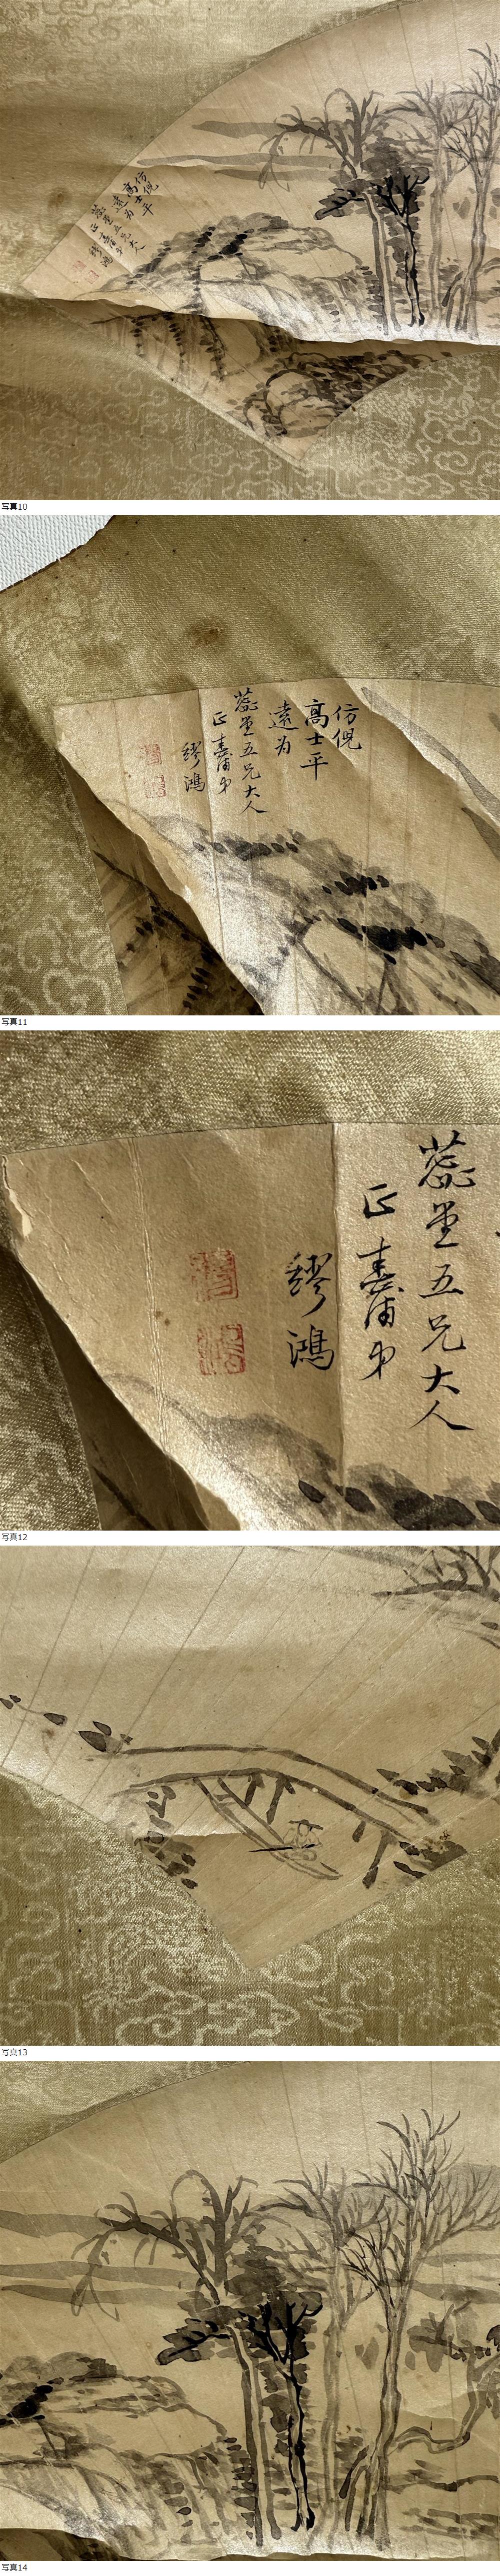 仿倪
高士平
遠为
蕊堂五兄大人
正
繆鴻
写真10
仿倪
高士平
遠为
蕊堂五兄大人
正
繆鴻
写真11
蕊堂五兄大人
正
繆鴻
写真12
写真13
写真14